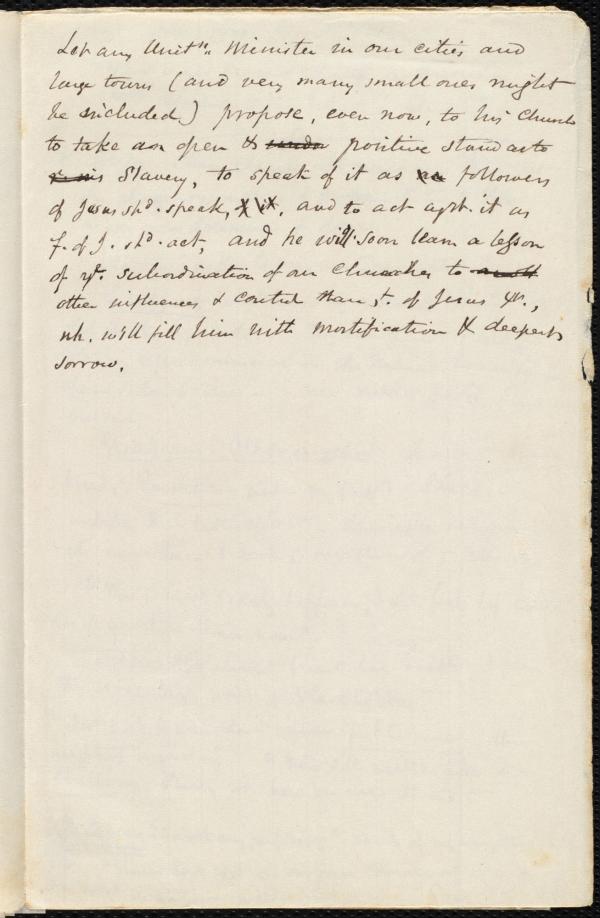 Let any Unitn. Minister in our cities and
large towns (and very many small ones might
be included) propose, even now, to his Church
to take an open & positive stand as to
Slavery, to speak of it as followers
of Jesus shd. speak, and to act agst. it as
f. of J. shd. act, and he will soon learn a lesson
of ye. subordination of our Churches to
other influences & control than yt. of Jesus Xt.,
wh. will fill him with mortification & deepest
sorrow.